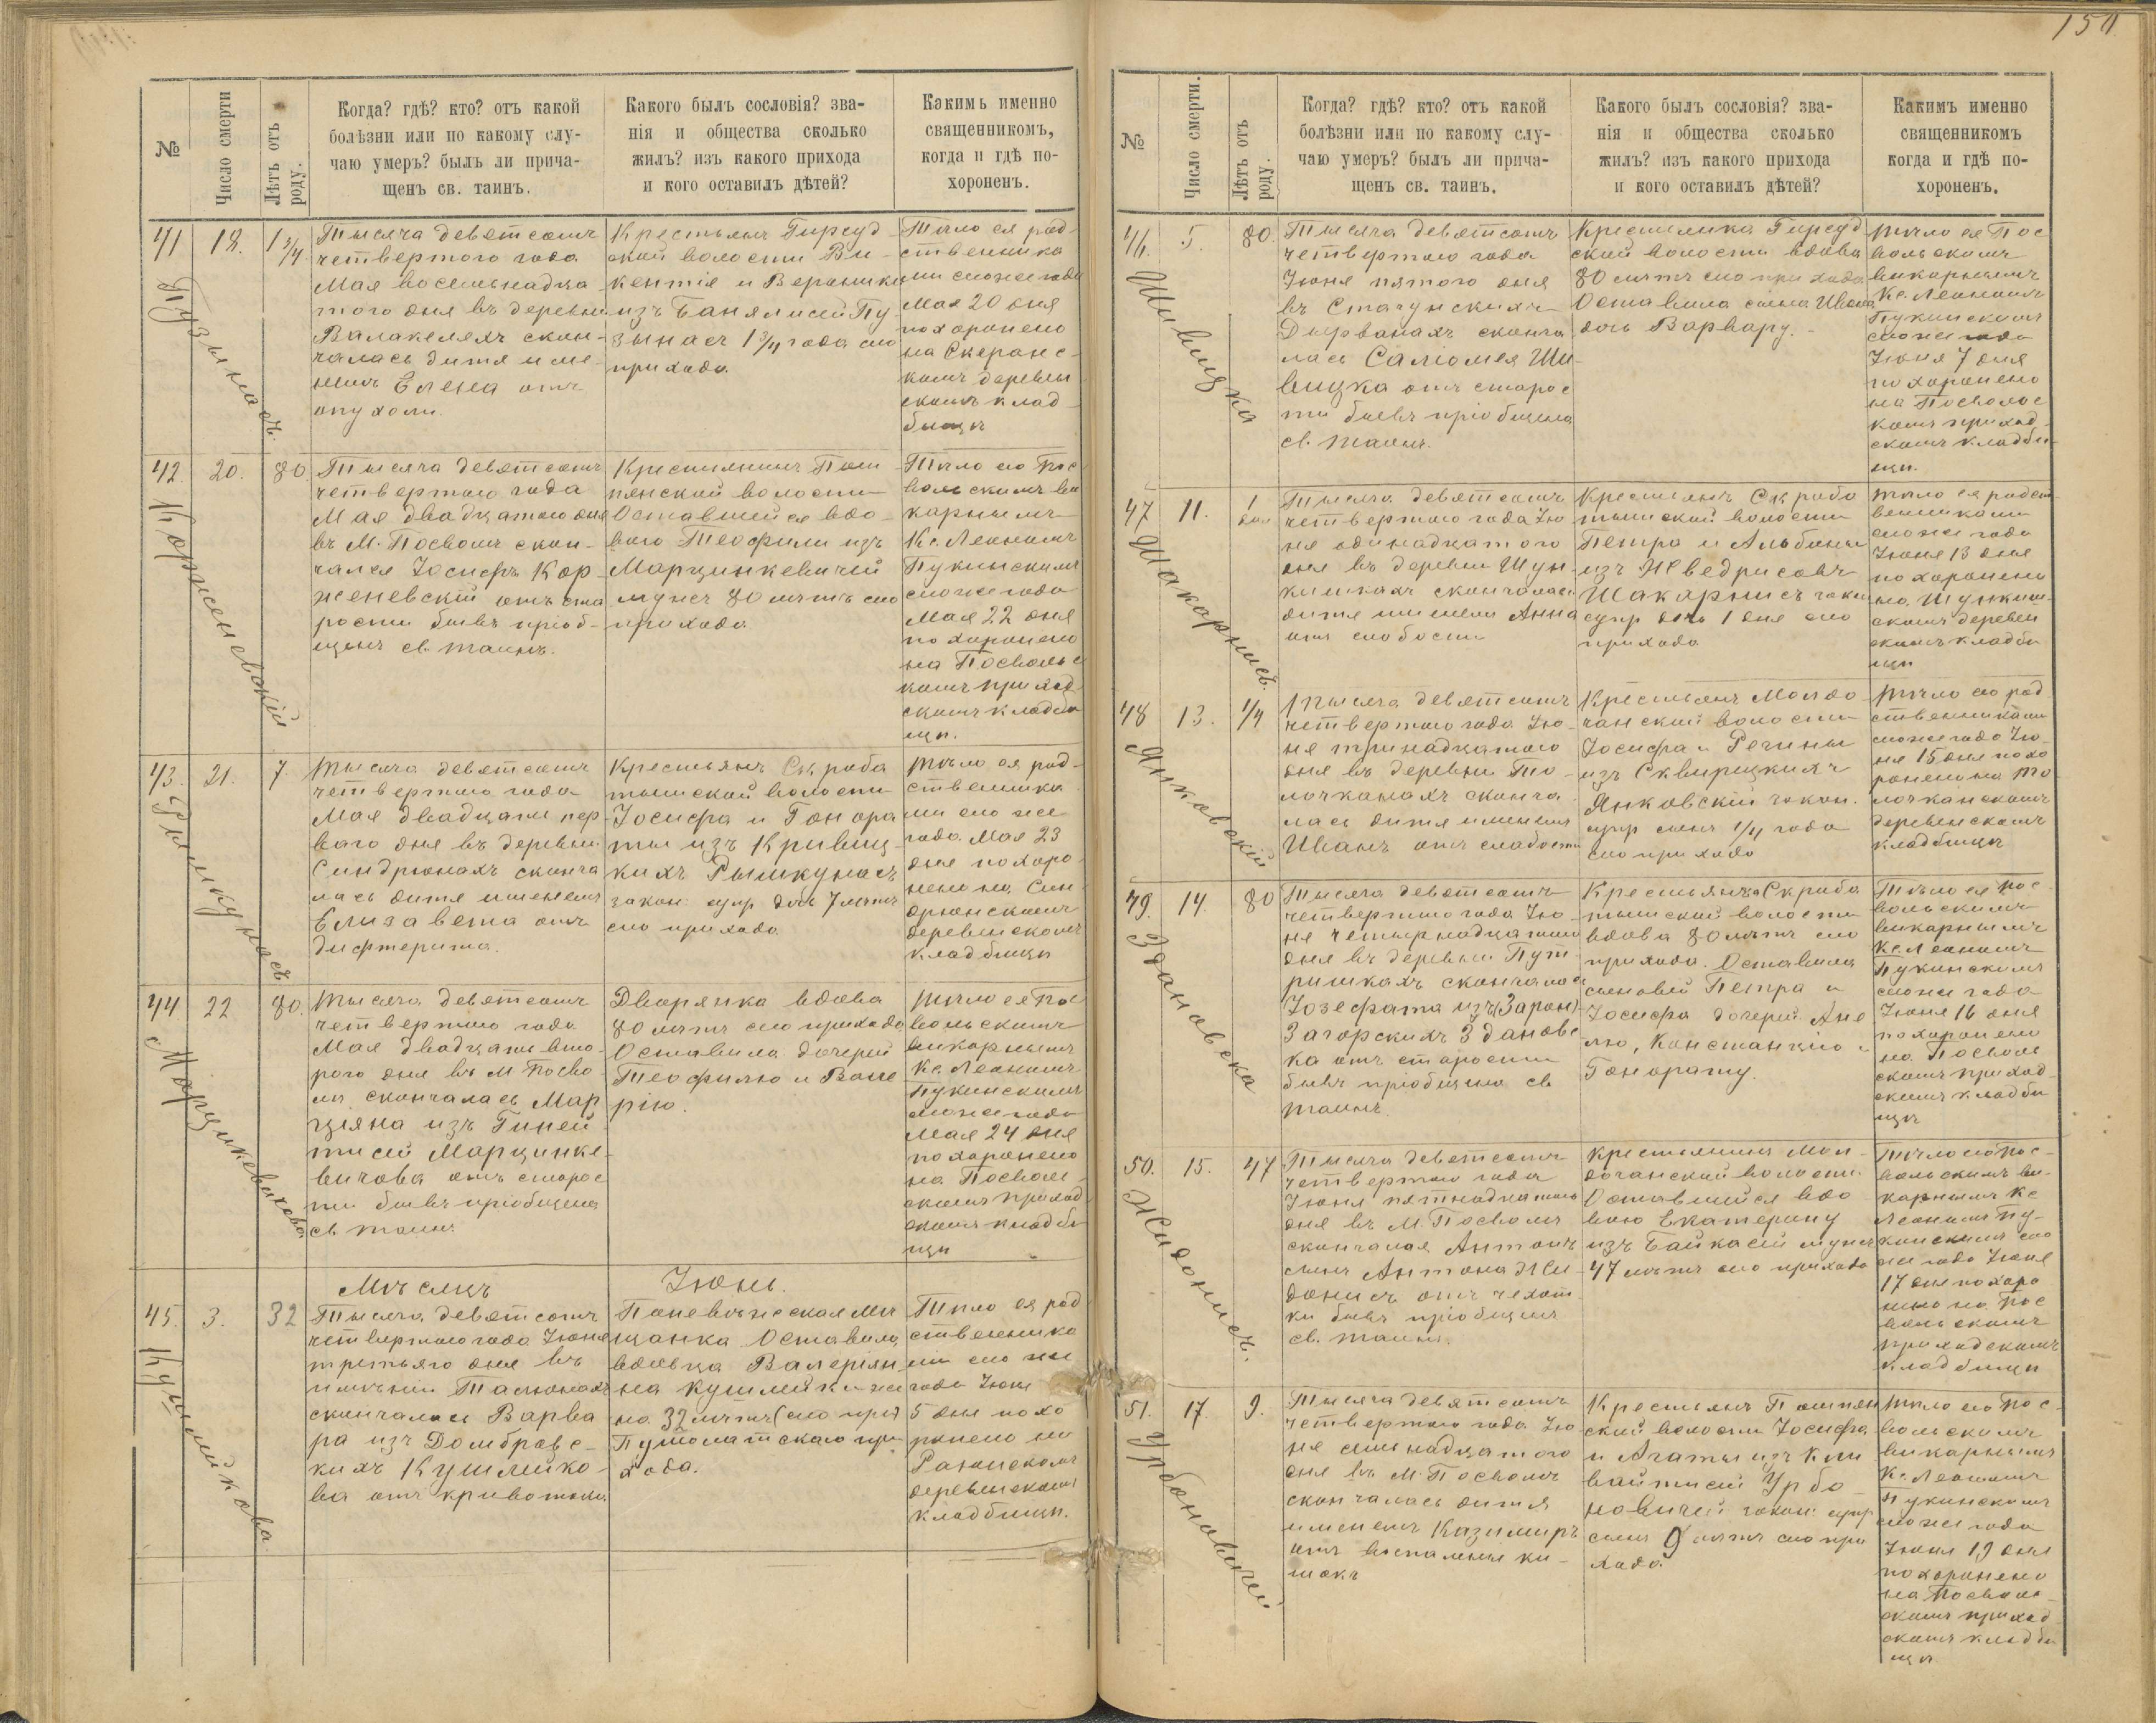 150
№
Число смерти
Лѣтъ отъ роду.
Когда? гдѣ? кто? отъ какой
болѣзни или по какому слу-
чаю умеръ? былъ ли прича-
щенъ св. таинъ.
Какого былъ сословія? зва-
нія и общества сколько
жилъ? изъ какого прихода
и кого оставилъ дѣтей?
Какимъ именно
священникомъ,
когда и гдѣ по-
хороненъ.
41
18.
1 3/4
Пузынасъ.
Тысяча девятсотъ
четвертого года
Мая восемьнадца
того дня въ деревни
Валакеляхъ скон-
чалась дитя име-
немъ Елена отъ
опухоли.
Крестьянъ Гирсуд
ской волости Ви-
кентія и Вероники
изъ Банялисей Пу
зынасъ 1 3/4 года сего
прихода.
Тѣло ея род-
ственника
ми сегоже года
Мая 20 дня
похоронено
на Скеранс-
комъ деревен
скомъ клад
бищѣ
42.
20.
80.
Корженевскій
Тысяча девятсотъ
четвертого года
Мая двадцатого дня
въ М. Посволѣ скон-
чался Іосифъ Кор-
женевскій отъ ста
рости бывъ пріоб-
щенъ св. таинъ.
Крестьянинъ Пом
пянской волости
Оставшейся вдо-
вою Теофили изъ
Марцинкевичей
мужъ 80 лѣтъ сего
прихода
Тѣло его Пос
вольскимъ ви
карнымъ
Кс. Леономъ
Пукинскимъ
сегоже года
Мая 22 дня
похоронено
на Посвольс
комъ приход
скомъ кладби
щѣ.
43.
21.
7.
Рымкунасъ
Тысяча девятсотъ
четвертого года
Мая двадцати пер
ваго дня въ деревни
Синдрюнахъ сконча
лась дитя именемъ
Елизавета отъ
дифтерита.
Крестьянъ Скраба
тышской волости
Іосифа и Гонора
ты изъ Кривиц-
кихъ Рымкунасъ
закон. супр. дочь 7 лѣтъ
сего прихода.
Тѣло ея род-
ственника
ми сего же
года Мая 23
дня похоро
нено на Син
дрюнскомъ
деревенскомъ
кладбищѣ
44.
22
80.
Марцинкевичова
Тысяча девятсотъ
четвертого года
Мая двадцати вто-
рого дня въ М. Посво
лѣ скончалась Мар
ціяна изъ Гиней
тисей Марцинке-
вичова отъ старос
ти бывъ пріобщена
св. таинъ.
Дворянка вдова
80 лѣтъ сего прихода
Оставила дочерей
Теофилю и Вале
рію.
Тѣло ея Пос
вольскимъ
викарнымъ
Кс. Леономъ
Пукинскимъ
сегоже года
Мая 24 дня
похоронено
на Посволь-
скомъ приход
скомъ кладби
щѣ
Мѣсяцъ
Іюнь.
45.
3.
32
Кушлейкова
Тысяча девятсотъ
четвертого года Іюня
третьяго дня въ
имѣніи Талюнахъ
скончалась Варва
ра изъ Домбровс-
кихъ Кушлейко-
ва отъ кривотоки.
Поневѣжская Мѣ
щанка Оставила
вдовца Валеріян
на Кушлейки же
на 32 лѣтъ
Пушолатскаго при
хода.
Тѣло ея род
ственника
ми сего же
года Іюня
5 дня похо
ронено на
деревенскомъ
кладбищѣ.
№
Число смерти.
Лѣтъ отъ роду.
Когда? гдѣ? кто? отъ какой
болѣзни или по какому слу-
чаю умеръ? былъ ли прича-
щенъ св. таинъ.
Какого былъ сословія? зва-
нія и общества сколько
жилъ? изъ какого прихода
и кого оставилъ дѣтей?
Какимъ именно
священникомъ
когда и гдѣ по-
хороненъ.
46.
5.
80.
Шивицка
Тысяча девятсотъ
четвертого года
Іюня пятого дня
въ Стачунскихъ
Дырванахъ сконча
лась Саломея Ши-
вицка отъ старос
ти бывъ пріобщена
св. таинъ.
Крестьянка Гирсуд
ской волости вдова
80 лѣтъ сего прихода
Оставила сына Ивана
дочь Варвару.
Тѣло ея Пос
вольскимъ
викарнымъ
Кс. Леономъ
Пукинскимъ
сегоже года
Іюня 7 дня
похоронено
на Посвольс
комъ приход
скомъ кладби-
щѣ.
47
11.
1 дня
Шакарнисъ.
Тысяча девятсотъ
четвертого года Ію
ня одинадцатого
дня въ деревни Шун-
кишкахъ скончалась
дитя именемъ Анна
отъ слабости
Крестьянъ Скраба
тышской волости
Петра и Альбины
изъ Неведрисовъ
Шакарнисъ закон
супр дочь 1 дня сего
прихода
Тѣло ея родст
венниками
сегоже года
Іюня 13 дня
похоронено
на Шункиш-
скомъ деревен
скомъ кладби
щѣ
48
13.
1/4
Янковскій
Тысяча девятсотъ
четвертого года Ію-
ня тринадцатого
дня въ деревни То-
лочканахъ сконча
лась дитя именемъ
Иванъ отъ слабости
Крестьянъ Моло
чанской волости
Іосифа и Регины
изъ Сквирецкихъ
Янковскій закон.
супр сынъ 1/4 года
сего прихода
Тѣло его род
ственниками
сегоже года Ію
ня 15 дня похо
ронено на То
лочканскомъ
деревенскомъ
кладбищѣ
49.
14.
80
Здановска
Тысяча девятсотъ
четвертого года Ію
ня четырнадцатого
дня въ деревни Пут
ришкахъ скончалась
Іозефата изъ
Загорскихъ Здановс
ка отъ старости
бывъ пріобщена св
таинъ.
Крестьянка Скраба
тышской волости
вдова 80 лѣтъ сего
прихода. Оставила
сыновей Петра и
Іосифа дочерей Ане
лю, Констанцію и
Гонорату.
Тѣло ея Пос
вольскимъ
викарнымъ
Кс. Леономъ
Пукинскимъ
сегоже года
Іюня 16 дня
похоронено
на Посволь
скомъ приход
скомъ кладби
щѣ
50.
15.
47
Жидонисъ.
Тысяча девятсотъ
четвертого года
Іюня пятнадцатого
дня въ М. Посволѣ
скончался Антонъ
сынъ Антона Жи-
донисъ отъ чехот-
ки бывъ пріобщенъ
св. таинъ.
Крестьянинъ
волости.
Оставшейся вдо
вою Екатерину
изъ Байкасей мужъ
47 лѣтъ сего прихода
Тѣло его Пос-
вольскимъ ви-
карнымъ Кс
Леономъ Пу-
кинскимъ сего
же года Іюня
17 дня похоро
нено на Пос
вольскомъ
приходскомъ
кладбищѣ
51.
17.
9.
Урбоновичей
Тысяча девятсотъ
четвертого года Ію
ня семьнадцатого
дня въ М. Посволѣ
скончалась дитя
именемъ Казимиръ
отъ воспаленія ки-
шокъ
Крестьянъ Помпян
ской волости Іосифа
и Агаты изъ Кли
вайтисей Урбо
новичей закон. супр
сынъ 9 лѣтъ сего при
хода.
Тѣло его Пос-
вольскимъ
викарнымъ
Кс. Леономъ
Пукинскимъ
сегоже года
Іюня 19 дня
похоронено
на Посволь-
скомъ приход
скомъ кладби
щѣ